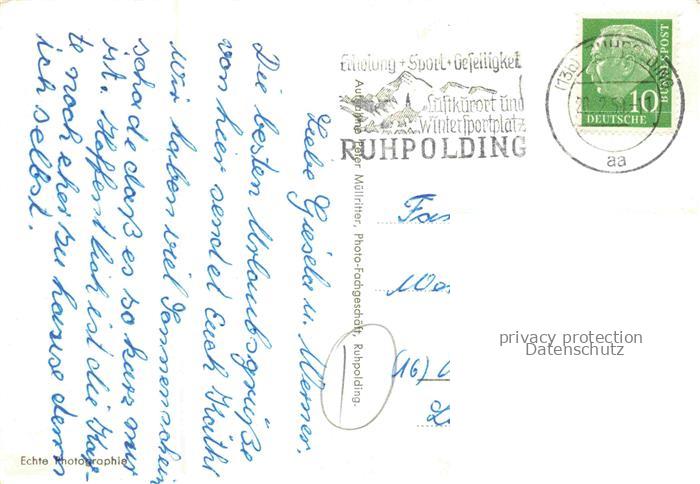 Erholung + Sport + Geselligkeit
Luftkurort und
Wintersportplatz
RUHPOLDING
(13b) RUHPOLDING
aa
10
DEUTSCHE
BUNDESPOST
Liebe Gisela u. Werner.
Die besten Urlaubsgrüße
von hier sendet Euch Käthi
Wir haben viel Sonnenschein
schade daß es so kurz nur
ist. Hoffentlich ist die Kar-
te noch eher zu hause denn
ich selbst.
Aufnahme Peter Müllritter, Photo-Fachgeschäft, Ruhpolding.
Fa
(16)
privacy protection
Datenschutz
Echte Photographie